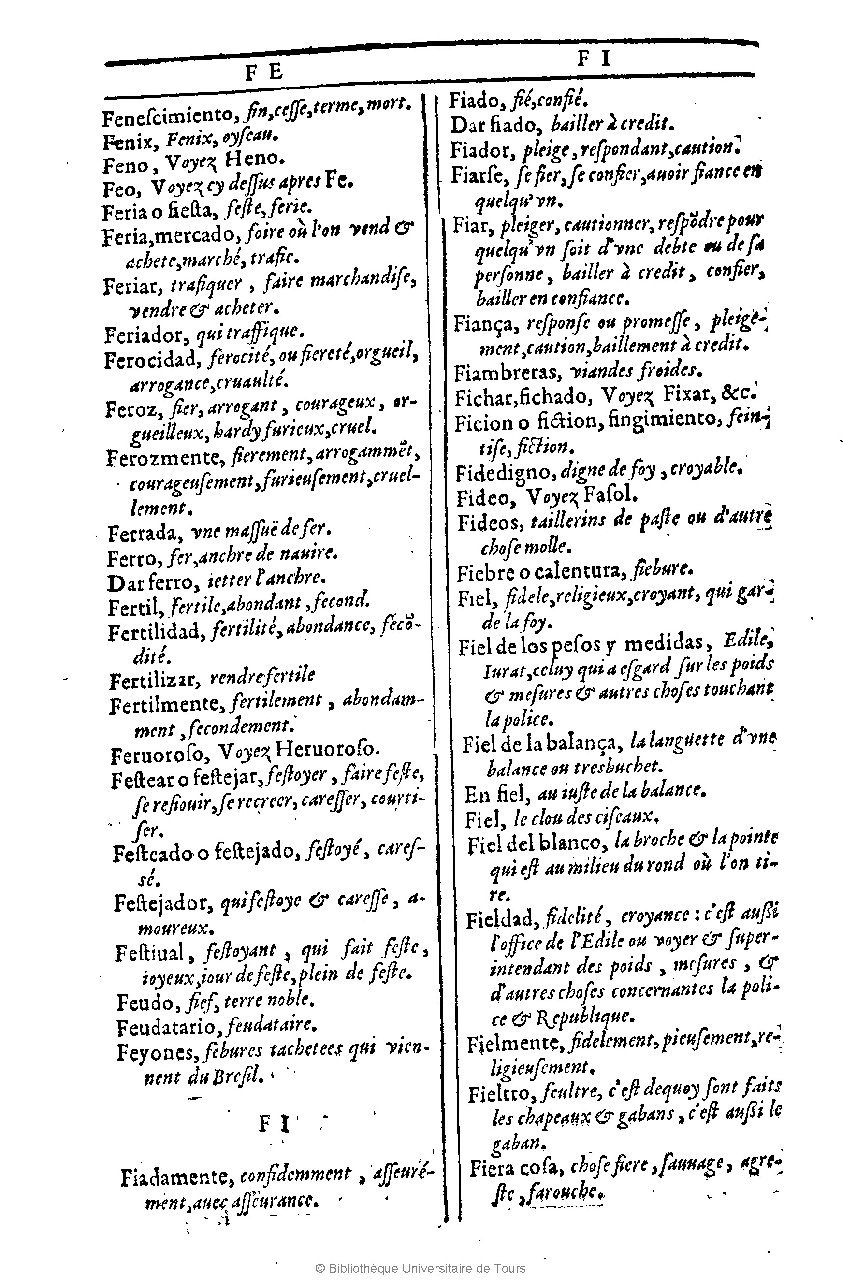 F E
Feneſcimiento, fin, ceſſe, terme, mort.
Fenix, Fenix, oyſeau.
Feno, Voyez Heno.
Feo, Voyez cy deſſus apres Fe.
Feria o fieſta, feſte, ferie.
Feria, mercado, foire où l'on vend &
achete, marché, trafic.
Feriar, trafiquer, faire marchandiſe,
vendre & acheter.
Feriador, qui traffique.
Ferocidad, ferocité, ou fiereté, orgueil,
arrogance, cruaulté.
Feroz, fier, arrogant, courageux, or-
gueilleux, hardy furieux, cruel.
Ferozmente, fierement, arrogammẽt,
courageuſement, furieuſement, cruel-
lement.
Ferrada, vne maſſuë de fer.
Ferro, fer, anchre de nauire.
Dar ferro, ietter l'anchre.
Fertil, fertile, abondant, fecond.
Fertilidad, fertilité, abondance, fecõ-
dité.
Fertilizar, rendre fertile
Fertilmente, fertilement, abondam-
ment, fecondement.
Feruoroſo, Voyez Heruoroſo.
Feſtear o feſtejar, feſtoyer, faire feſte,
ſe reſiouir, ſe recreer, careſſer, courti-
ſer.
Feſteado o feſtejado, feſtoyé, careſ-
sé.
Feſtejador, qui feſtoye & careſſe, a-
moureux.
Feſtiual, feſtoyant, qui fait feſte,
ioyeux, iour de feſte, plein de feſte.
Feudo, fief, terre noble.
Feudatario, feudataire.
Feyones, febures tachetees qui vien-
nent du Breſil.
F I
Fiadamente, confidemment, aſſeuré-
ment, auec aſſeurance.
F I
Fiado, fié, confié.
Dar fiado, bailler à credit.
Fiador, pleige, reſpondant, caution.
Fiarſe, ſe fier, ſe confier, auoir fiance en
quelqu'vn.
Fiar, pleiger, cautionner, reſpõdre pour
quelqu'vn ſoit d'vne debte ou de ſa
perſonne, bailler à credit, confier,
bailler en confiance.
Fiança, reſponſe ou promeſſe, pleige-
ment, caution, baillement à credit.
Fiambreras, viandes froides.
Fichar, fichado, Voyez Fixar, &c.
Ficion o fiction, fingimiento, fein-
tiſe, fiction.
Fidedigno, digne de foy, croyable.
Fideo, Voyez Faſol.
Fideos, taillerins de paſte ou d'autre
choſe molle.
Fiebre o calentura, fiebure.
Fiel, fidele, religieux, croyant, qui gar-
de la foy.
Fiel de los peſos y medidas, Edile,
Iurat, celuy qui a eſgard ſur les poids
& meſures & autres choſes touchant
la police.
Fiel de la balança, la languette d'vne
balance ou tresbuchet.
En fiel, au iuſte de la balance.
Fiel, le clou des ciſeaux.
Fiel del blanco, la broche & la pointe
qui eſt au milieu du rond où l'on ti-
re.
Fieldad, fidelité, croyance: c'eſt auſſi
l'office de l'Edile ou voyer & ſuper-
intendant des poids, meſures, &
d'autres choſes concernantes la poli-
ce & Republique.
Fielmente, fidelement, pieuſement, re-
ligieuſement.
Fieltro, feultre, c'eſt dequoy ſont faits
les chapeaux & gabans, c'eſt auſſi le
gaban.
Fiera coſa, choſe fiere, ſauuage, agre-
ſte, farouche.
© Bibliothèque Universitaire de Tours